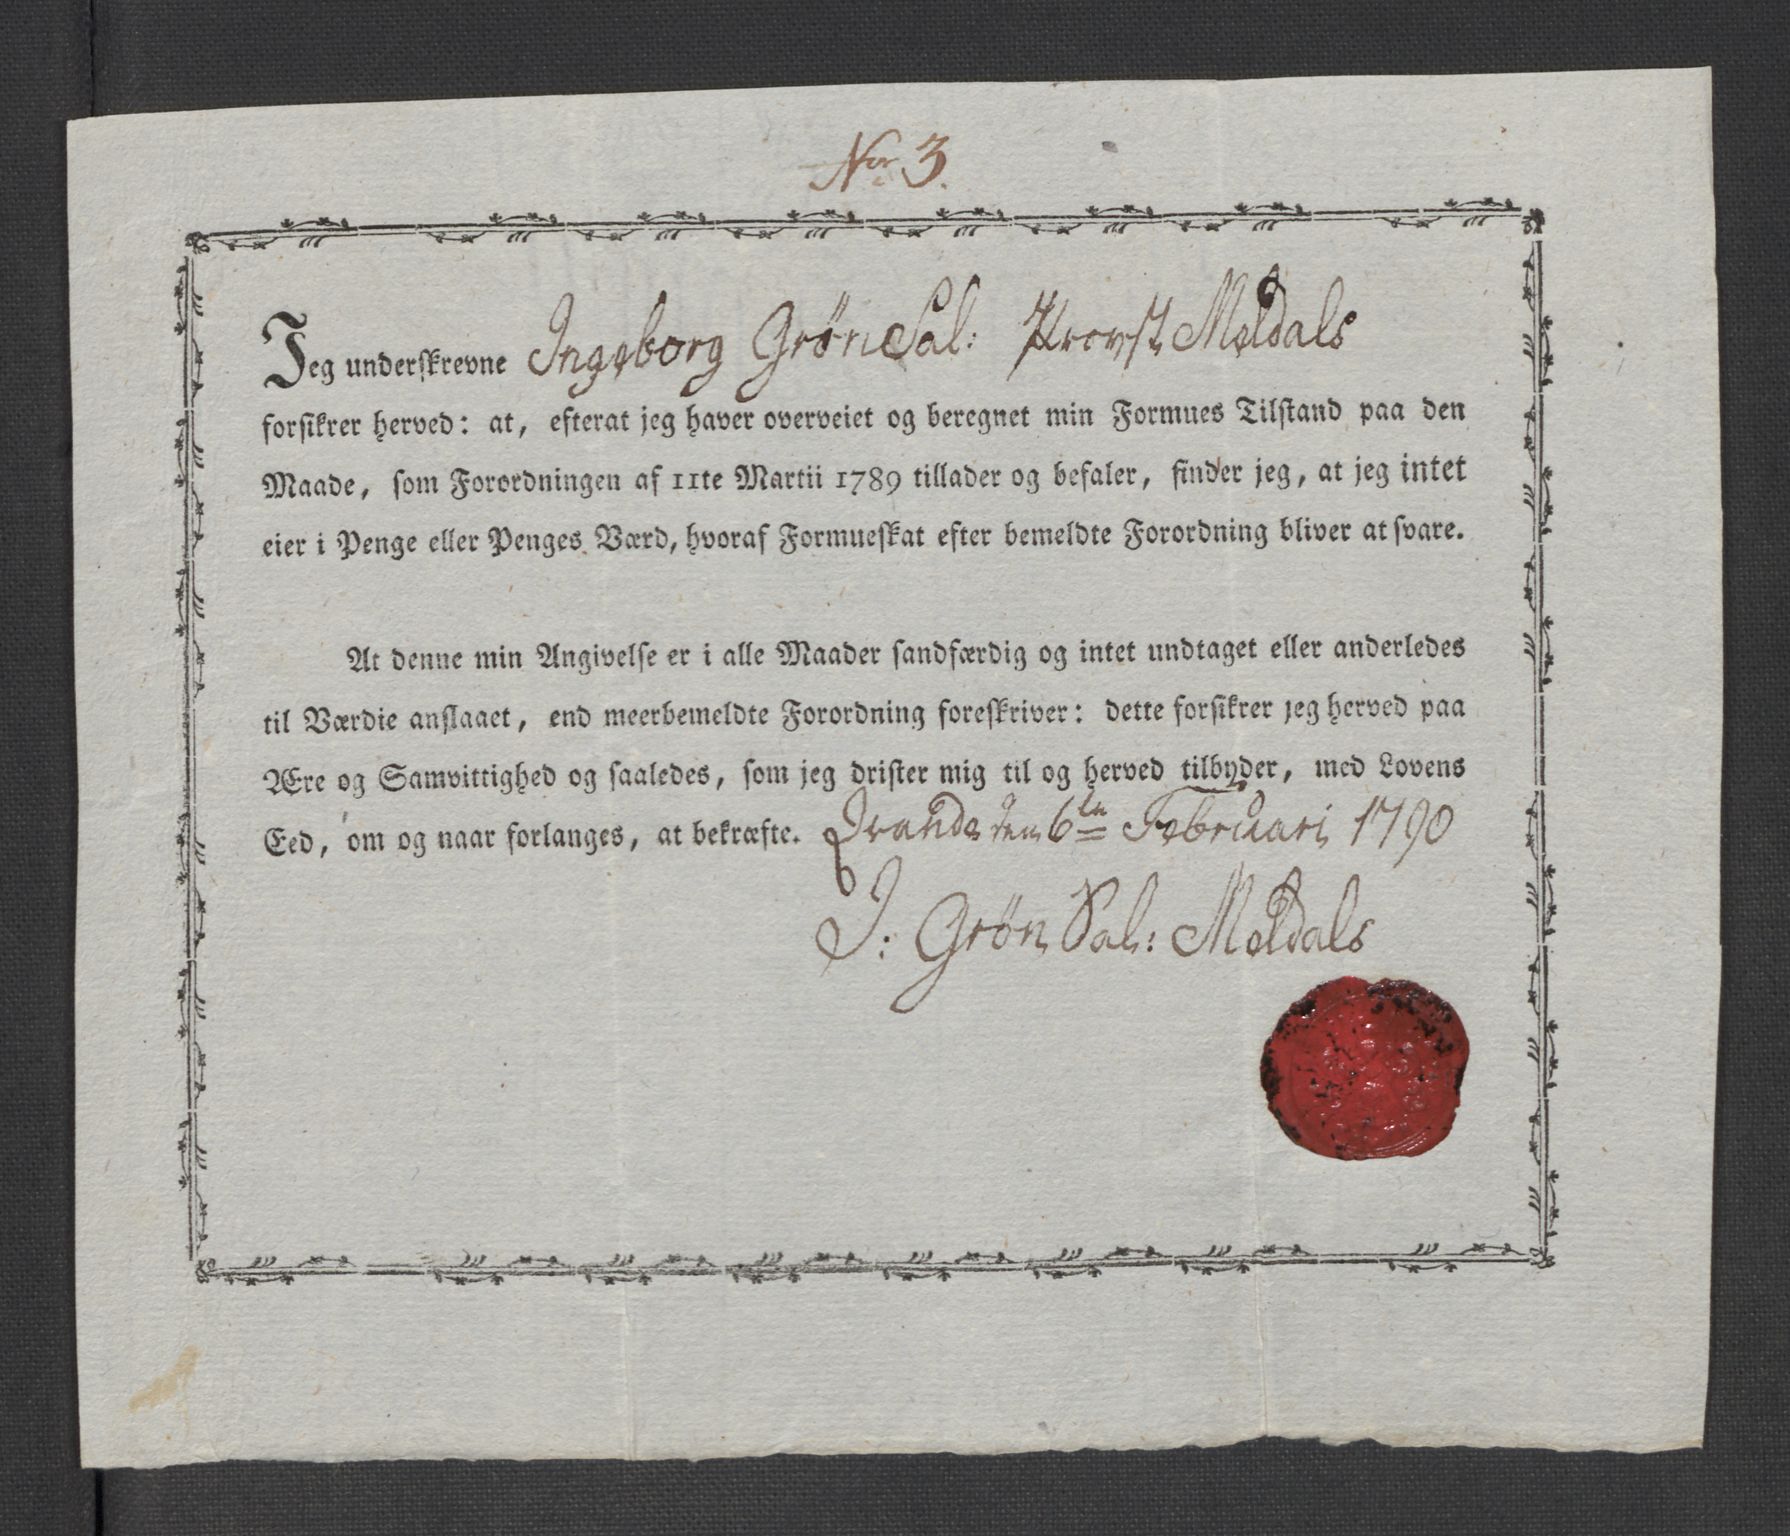 Nor 3.
Jeg underskrevne Ingeborg Grön Sal: Provst Meldals
forsikrer herved: at, efterat jeg haver overveiet og beregnet min Formues Tilstand paa den
Maade, som Forordningen af 11te Martii 1789 tillader og befaler, finder jeg, at jeg intet
eier i Penge eller Penges Værd, hvoraf Formueskat efter bemeldte Forordning bliver at svare.
At denne min Angivelse er i alle Maader sandfærdig og intet undtaget eller anderledes
til Værdie anslaaet, end meerbemeldte Forordning foreskriver: dette forsikrer jeg herved paa
Ære og Samvittighed og saaledes, som jeg drister mig til og herved tilbyder, med Lovens
Eed, om og naar forlanges, at bekræfte. den 6te Februari 1790
J: Grön Sal: Meldals